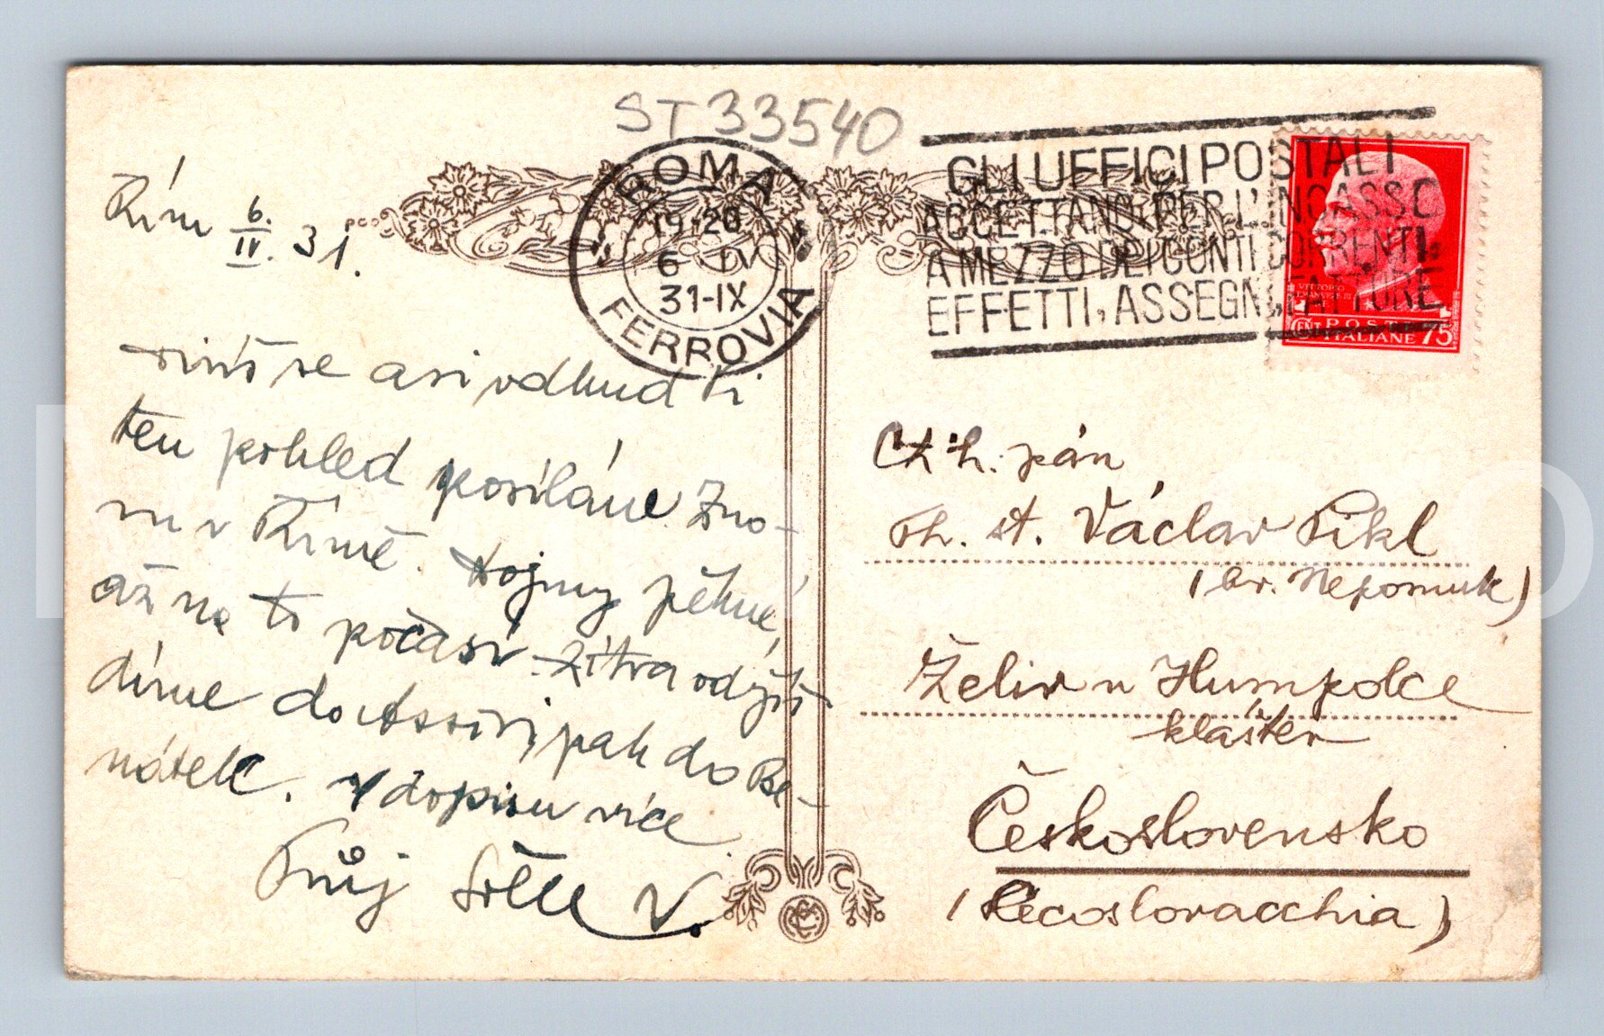 ST 33540
ROMA
19-20
6 IV
31-IX
FERROVIA
GLI UFFICI POSTALI
ACCETTANO PER L'INCASSO
A MEZZO DEI CONTI CORRENTI,
EFFETTI, ASSEGNI, FATTURE
POSTE
CENT ITALIANE 75
Řím 6./IV. 31.
se asi odkud Ti
ten pohled posíláme. Zno-
vu v Římě. pěkné,
až na to počasí. Zítra odjíž-
díme do Assisi, pak do Be-
nátek. V dopisu více
Tvůj V.
Ct. h. pán
Th. st. Václav Pikl
(br. Nepomuk)
Želiv u Humpolce
klášter
Československo
(Cecoslovacchia)